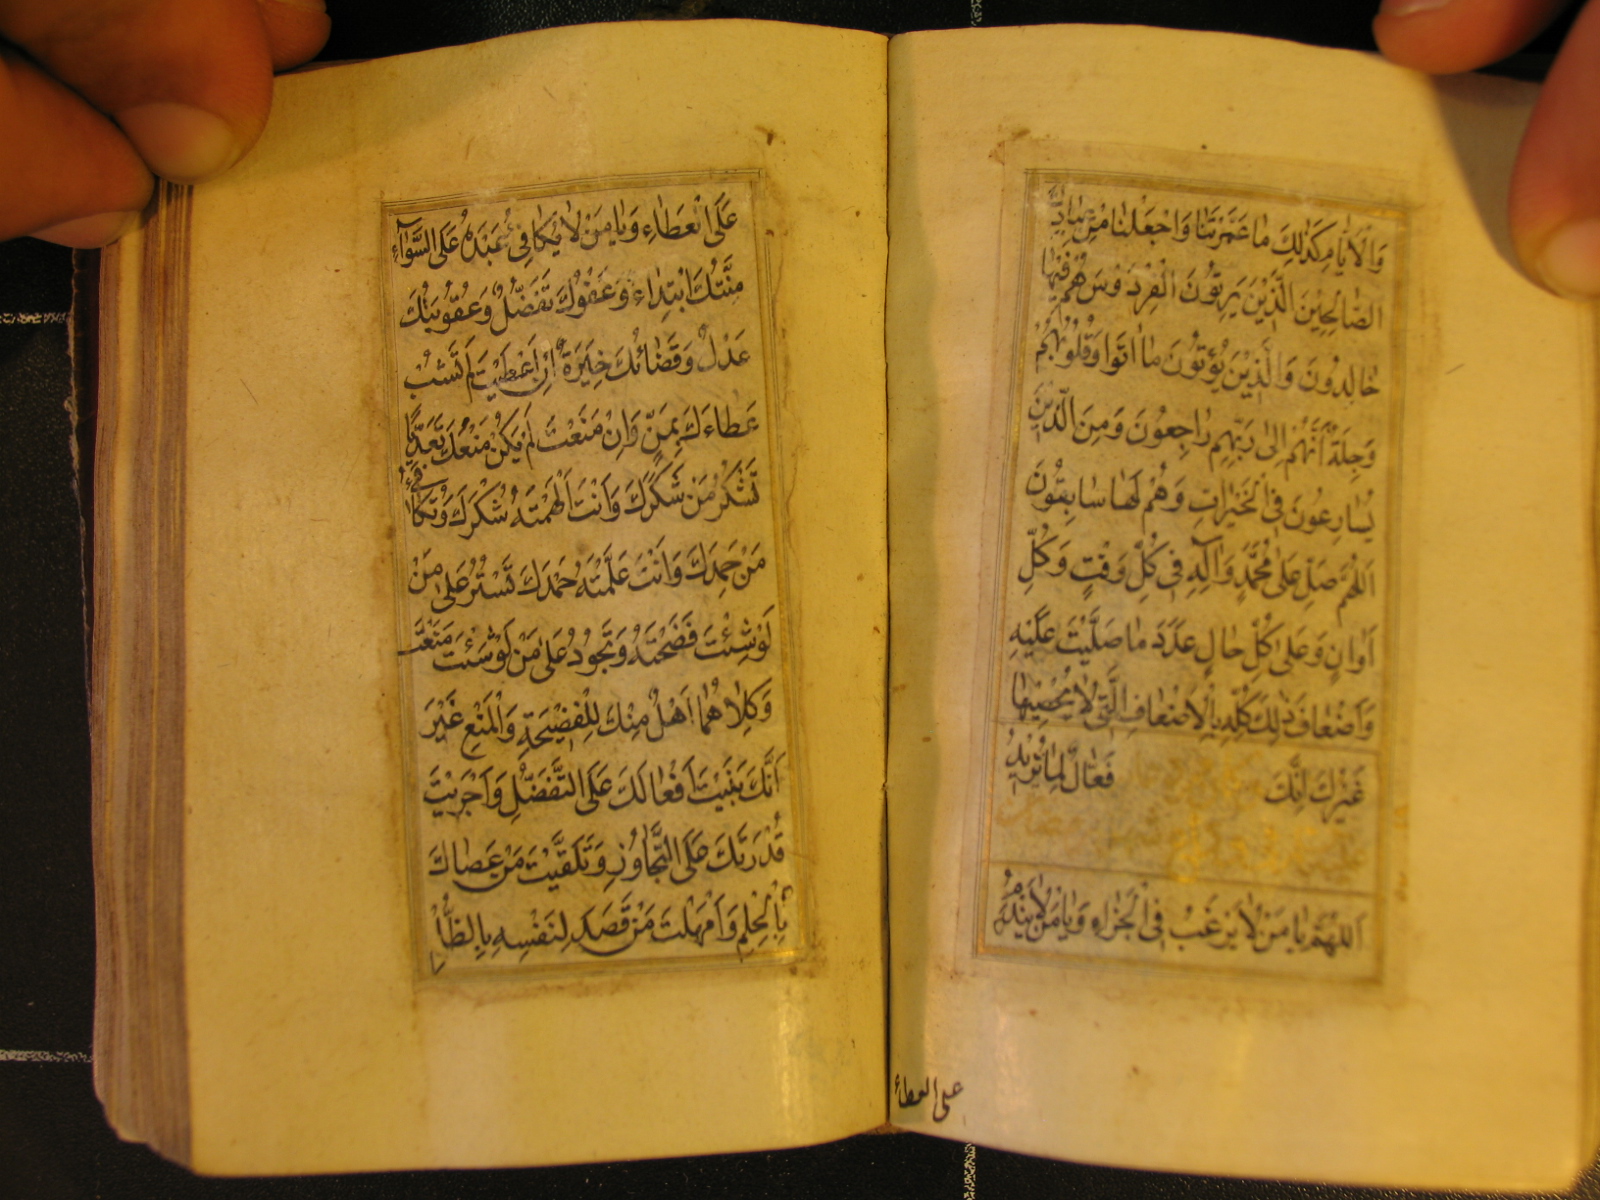 وَالْاَيَّامِ كَذٰلِكَ مَا عَمَّرْتَنَا وَاجْعَلْنَا مِنْ عِبَادِكَ
الصَّالِحِينَ الَّذِينَ يَرِثُونَ الْفِرْدَوْسَ هُمْ فِيهَا
خَالِدُونَ وَالَّذِينَ يُؤْتُونَ مَا اٰتَوْا وَقُلُوبُهُمْ
وَجِلَةٌ اَنَّهُمْ اِلىٰ رَبِّهِمْ رَاجِعُونَ وَمِنَ الَّذِينَ
يُسَارِعُونَ فِي الْخَيْرَاتِ وَهُمْ لَهَا سَابِقُونَ
اَللّٰهُمَّ صَلِّ عَلىٰ مُحَمَّدٍ وَاٰلِهِ فِي كُلِّ وَقْتٍ وَكُلِّ
اَوَانٍ وَعَلىٰ كُلِّ حَالٍ عَدَدَ مَا صَلَّيْتَ عَلَيْهِ
وَاَضْعَافَ ذٰلِكَ كُلِّهِ بِالْاَضْعَافِ الَّتِي لَا يُحْصِيهَا
غَيْرُكَ اِنَّكَ فَعَّالٌ لِمَا تُرِيدُ
اَللّٰهُمَّ يَا مَنْ لَا يَرْغَبُ فِي الْجَزَاءِ وَيَا مَنْ لَا يَنْدَمُ
على العطاء
عَلَى الْعَطَاءِ وَيَا مَنْ لَا يُكَافِئُ عَبْدَهُ عَلَى السَّوَاءِ
مِنَّتُكَ ابْتِدَاءٌ وَعَفْوُكَ تَفَضُّلٌ وَعُقُوبَتُكَ
عَدْلٌ وَقَضَائُكَ خِيَرَةٌ اِنْ اَعْطَيْتَ لَمْ تَشُبْ
عَطَاءَكَ بِمَنٍّ وَاِنْ مَنَعْتَ لَمْ يَكُنْ مَنْعُكَ تَعَدِّيًا
تَشْكُرُ مَنْ شَكَرَكَ وَاَنْتَ اَلْهَمْتَهُ شُكْرَكَ وَتُكَافِئُ
مَنْ حَمِدَكَ وَاَنْتَ عَلَّمْتَهُ حَمْدَكَ تَسْتُرُ عَلىٰ مَنْ
لَوْ شِئْتَ فَضَحْتَهُ وَتَجُودُ عَلىٰ مَنْ لَوْ شِئْتَ مَنَعْتَ
وَكِلَاهُمَا اَهْلٌ مِنْكَ لِلْفَضِيحَةِ وَالْمَنْعِ غَيْرَ
اَنَّكَ بَنَيْتَ اَفْعَالَكَ عَلَى التَّفَضُّلِ وَاَجْرَيْتَ
قُدْرَتَكَ عَلَى التَّجَاوُزِ وَتَلَقَّيْتَ مَنْ عَصَاكَ
بِالْحِلْمِ وَاَمْهَلْتَ مَنْ قَصَدَ لِنَفْسِهِ بِالظُّلْمِ